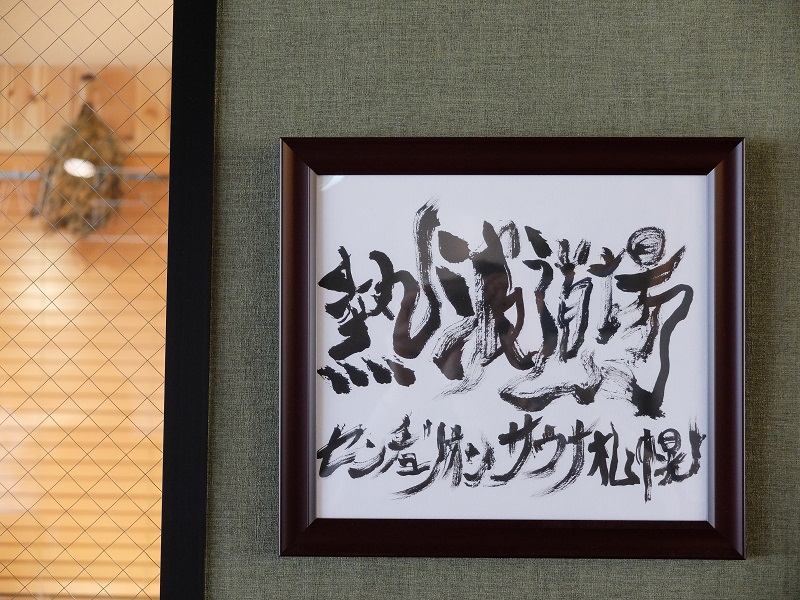 熱波道場
センチュリオンサウナ札幌